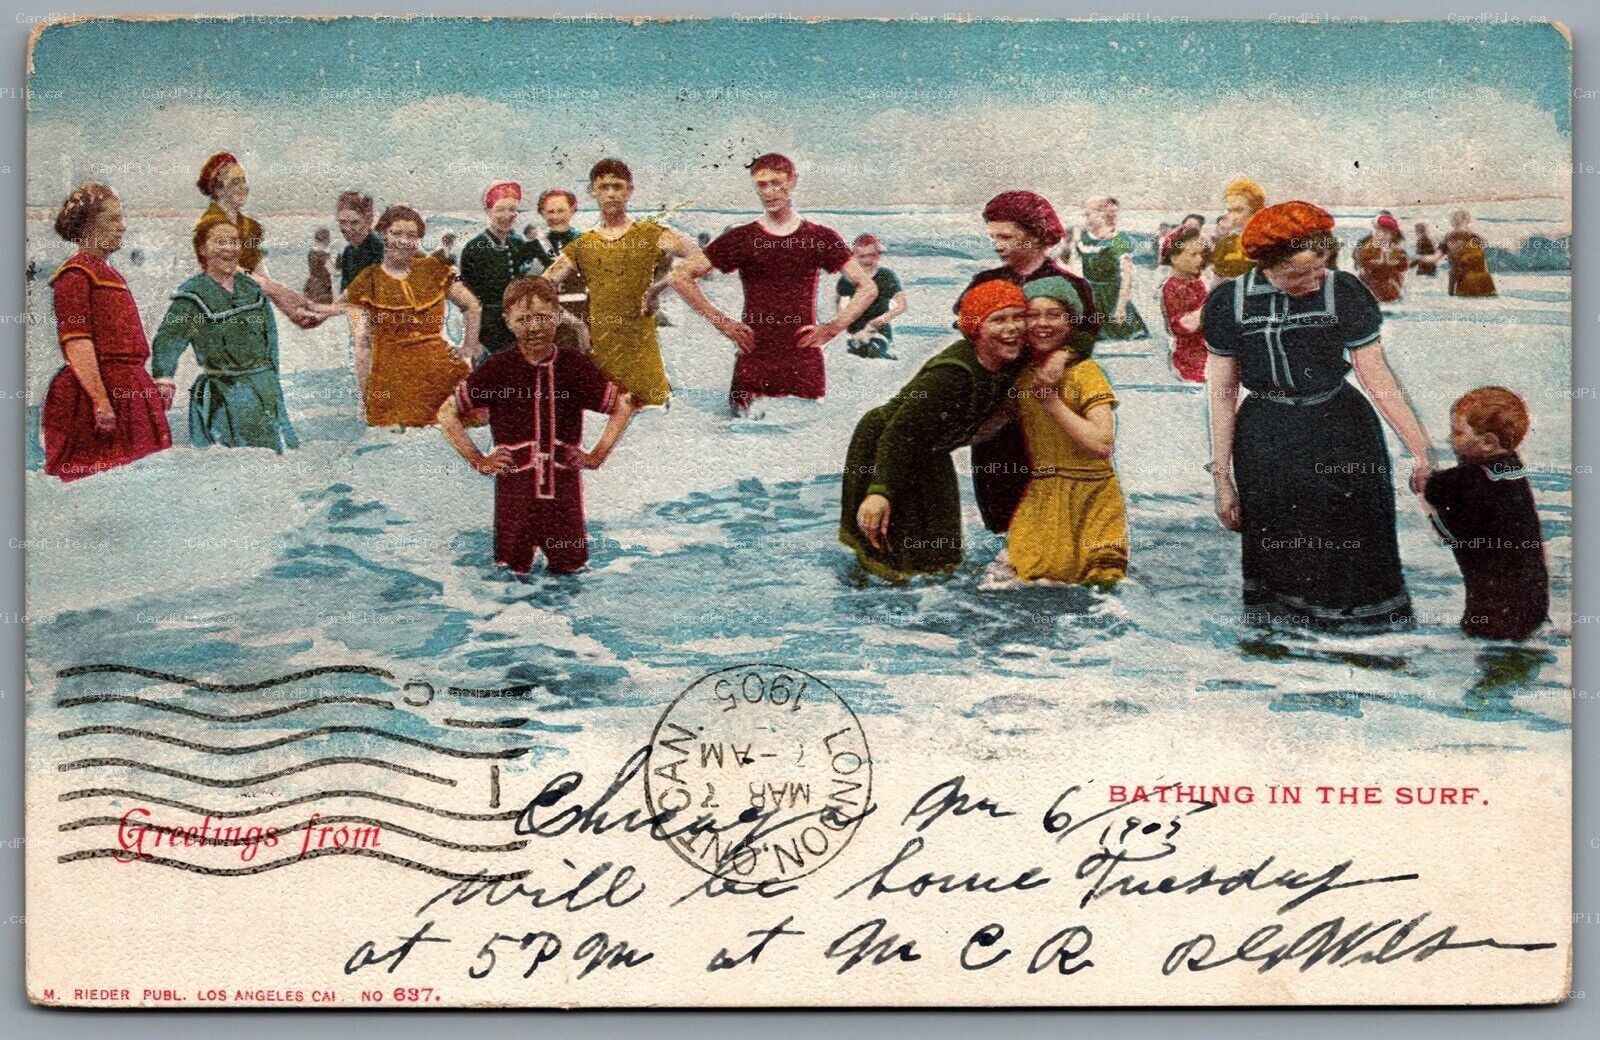 LONDON, ONT. CAN.
MAR 7
- AM
1905
C
1
Greetings from
BATHING IN THE SURF.
Chicago Mar 6/1905
Will be home Tuesday
at 5 PM at M C R
M. RIEDER PUBL. LOS ANGELES CAL NO 637.
CardPile.ca